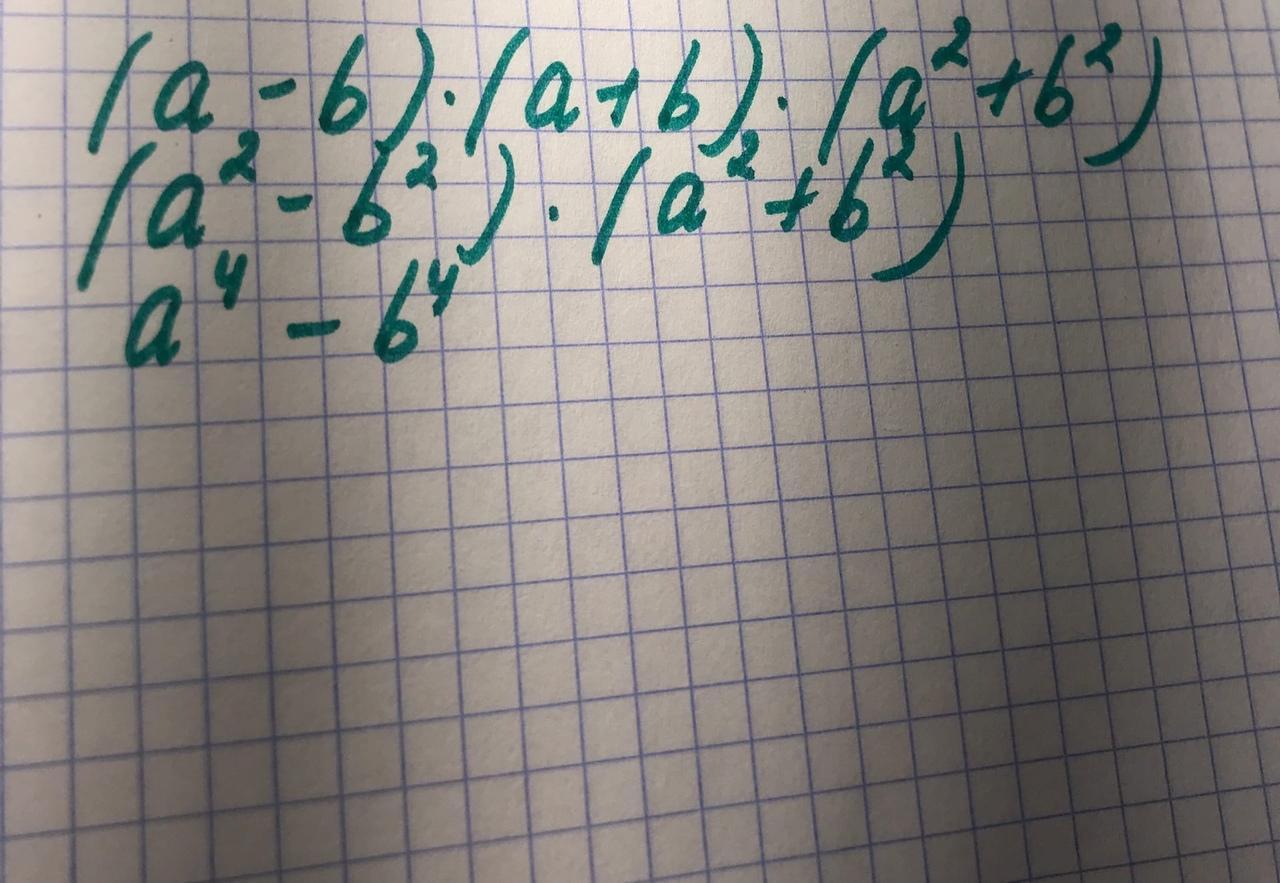 (a - b) · (a + b) · (a² + b²)
(a² - b²) · (a² + b²)
a⁴ - b⁴